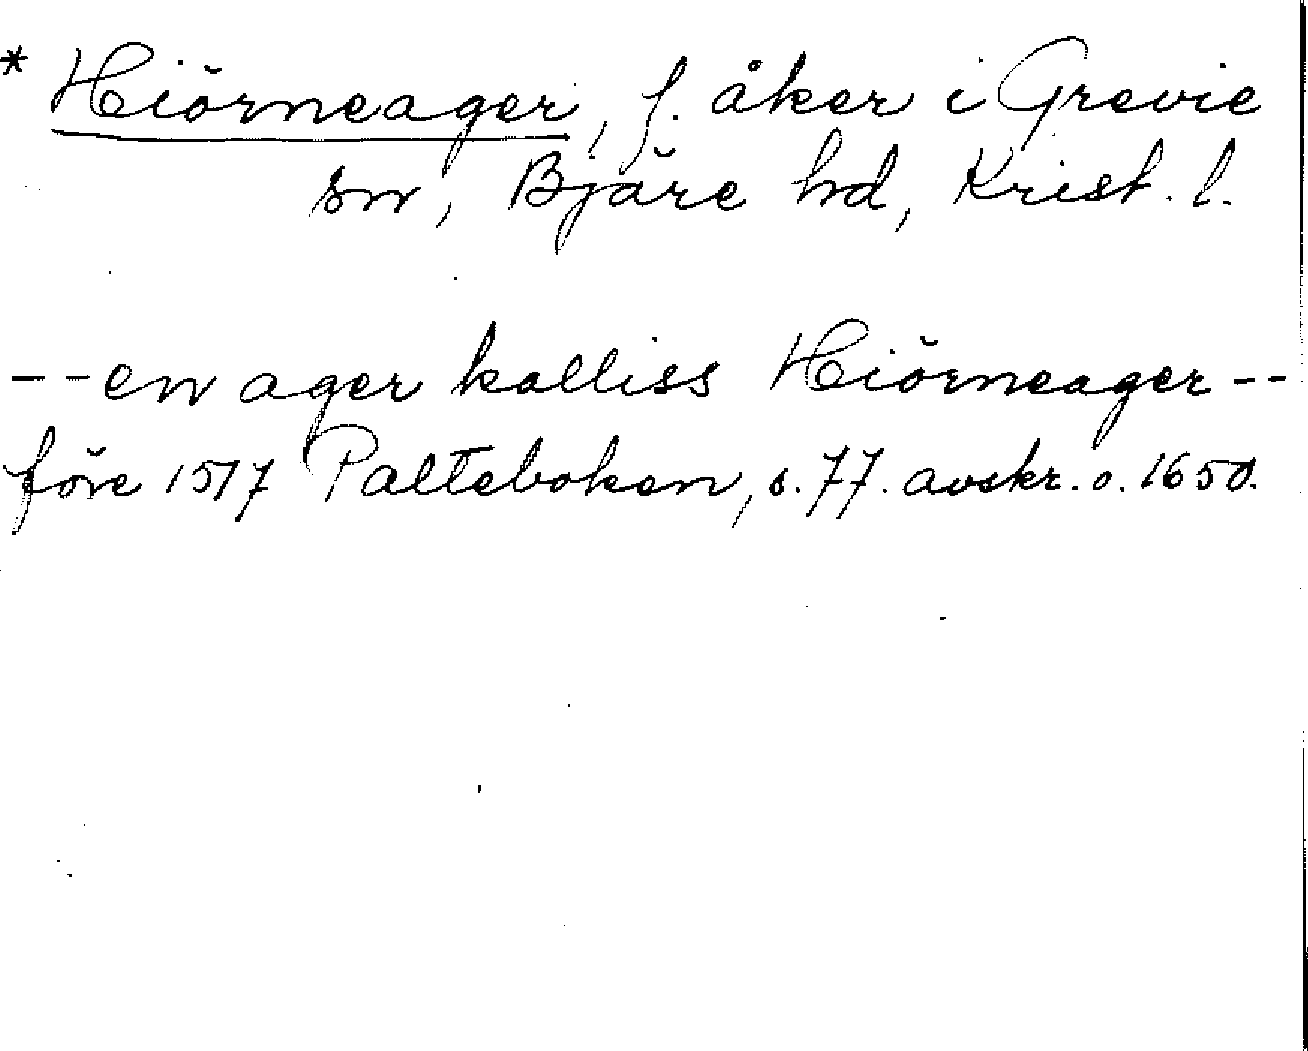 * Hiörneager, f. åker i Grevie
sn, Bjäre hd, Krist. l.
-- en ager kalliss Hiörneager --
före 1517 Palteboken, s. 77. avskr. o. 1650.